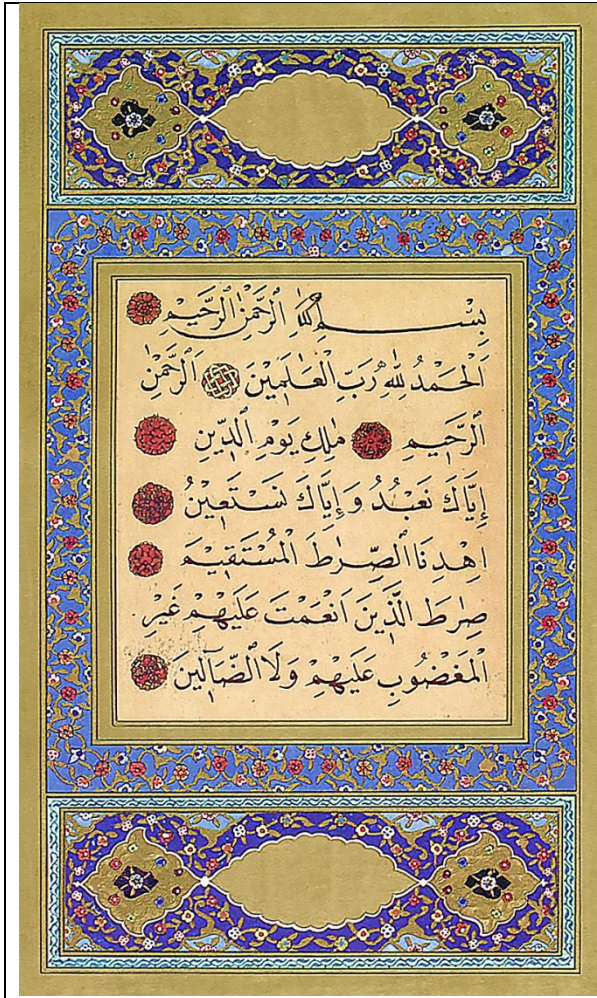 بِسْمِ اللهِ الرَّحْمٰنِ الرَّحِيمِ
اَلْحَمْدُ لِلّٰهِ رَبِّ الْعَالَمِينَ اَلرَّحْمٰنِ
الرَّحِيمِ مٰلِكِ يَوْمِ الدِّينِ
إِيَّاكَ نَعْبُدُ وَإِيَّاكَ نَسْتَعِينُ
اهْدِنَا الصِّرٰطَ الْمُسْتَقِيمَ
صِرٰطَ الَّذِينَ اَنْعَمْتَ عَلَيْهِمْ غَيْرِ
الْمَغْضُوبِ عَلَيْهِمْ وَلَا الضَّآلِّينَ